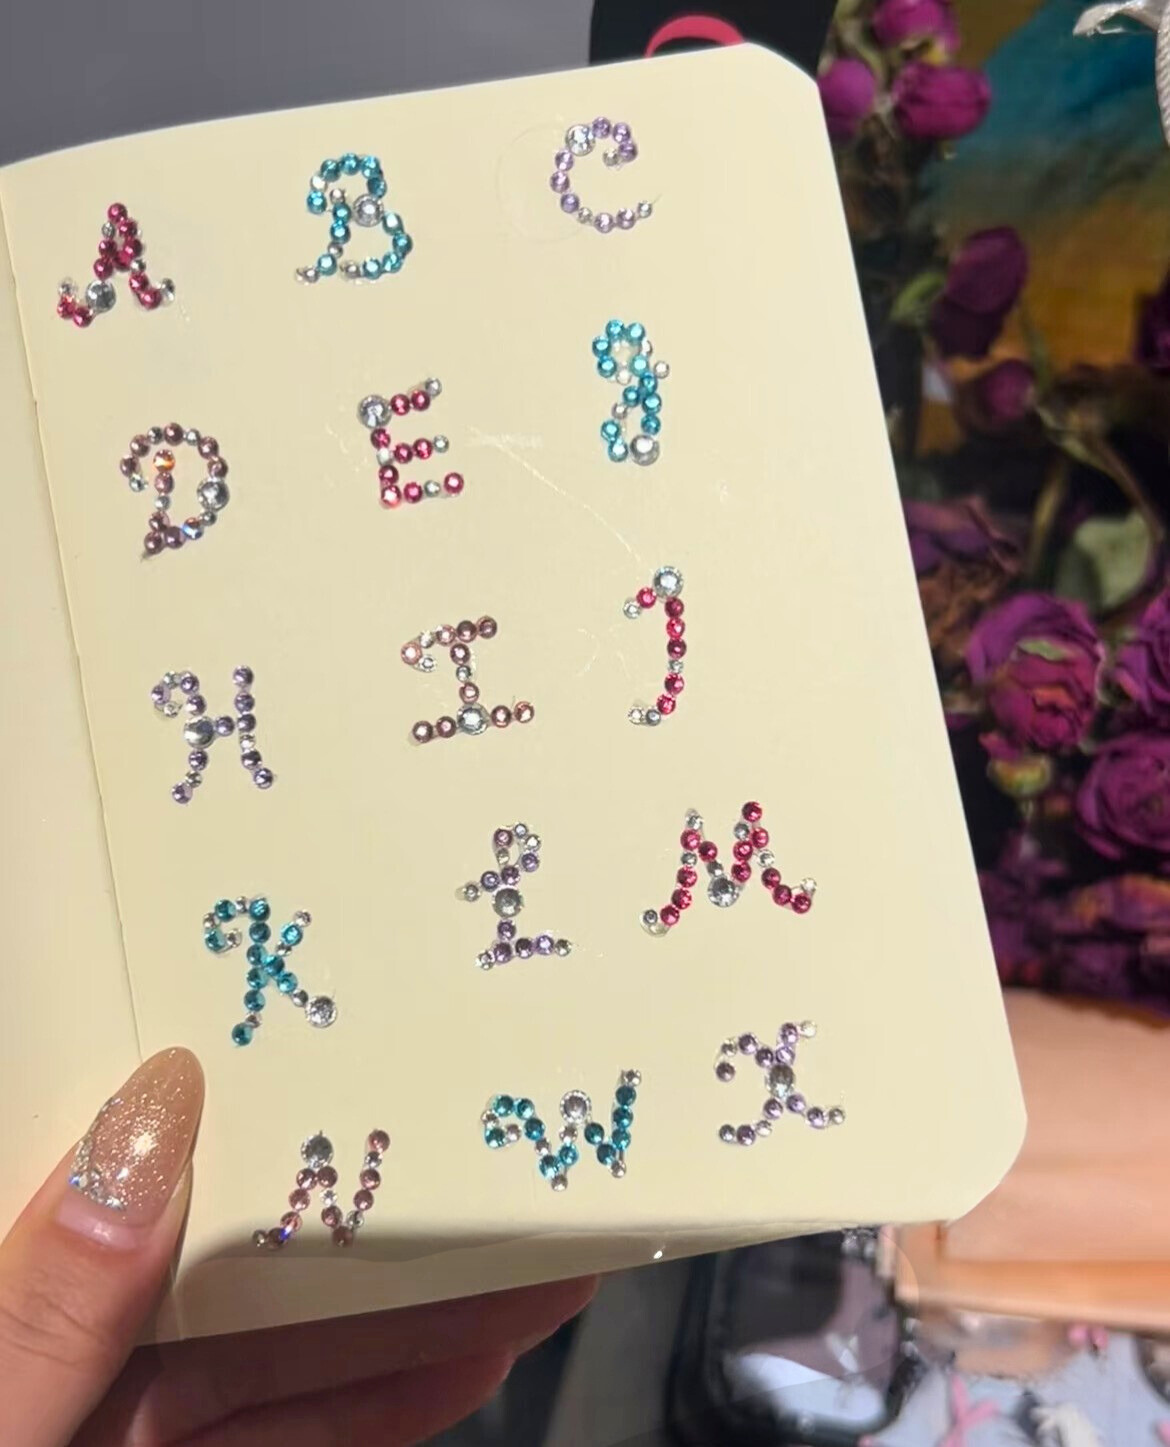 A B C
D E g
H I J
K L M
N W X